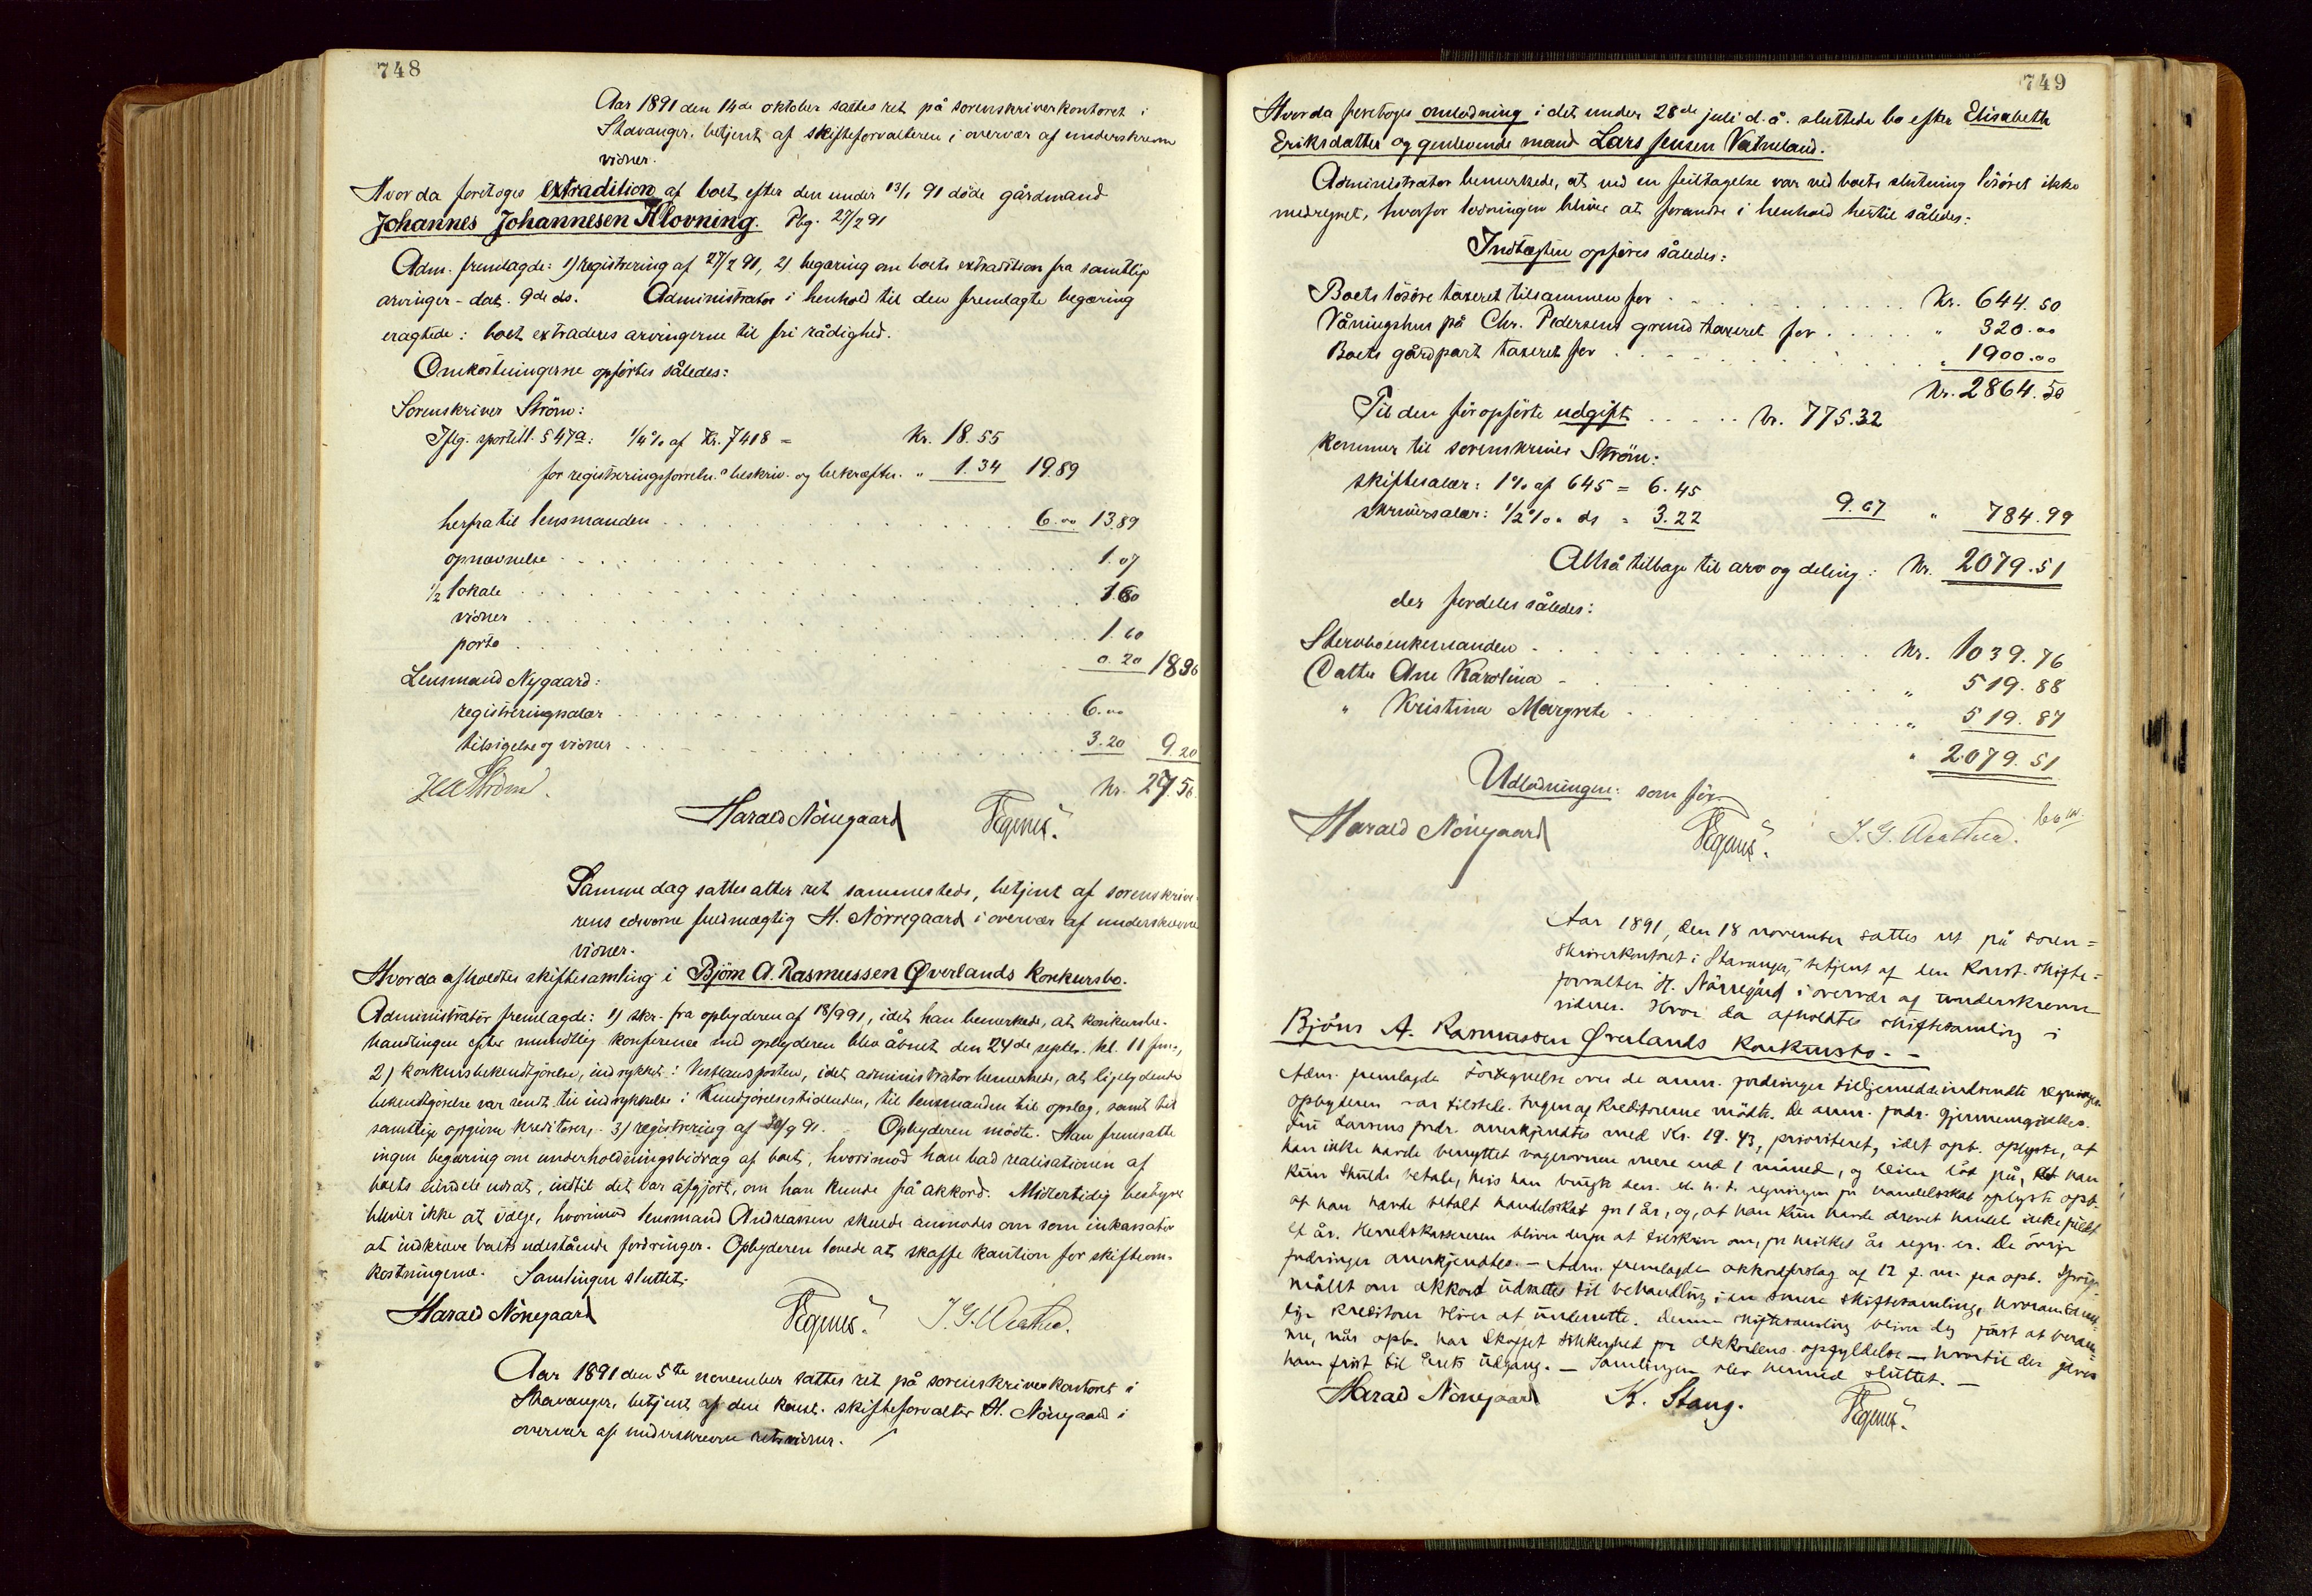 748
Aar 1891 den 14de oktober sattes ret på sorenskriverkontoret i
Stavanger, betjent af skifteforvalteren i overvær af underskrevne
vidner.
Hvor da foretoges extradition af boet efter den under 13/1 91 döde gårdmand
Johannes Johannesen Klovning. Rg. 27/2 91
Adm. fremlagde: 1) registrering af 27/2 91, 2) begæring om boets extradition fra samtlige
arvinger - dat. 9de ds. Administrator i henhold til den fremlagte begæring
eragtede: boet extraderes arvingerne til fri rådighed.
Omkostningerne opførtes således:
Sorenskriver Ström:
Iflg. sportell. § 47a: 1/4 % af Kr. 7418 = Kr. 18.55
for registreringsforretn.s beskriv. og bekræftn. " 1.34 19.89
herfra til lensmanden 6.00 13.89
opnævnelse 1.07
1/2 lokale 1.60
vidner 1.60
porto 0.20 18.36
Lensmand Nygaard:
registreringssalær 6.00
tilsigelse og vidner 3.20 9.20
Kr. 27.56
Harald Nörregaard
Samme dag sattes atter ret sammesteds, betjent af sorenskrive-
rens edsvorne fuldmægtig H. Nörregaard i overvær af underskrevne
vidner.
Hvor da afholdtes skiftesamling i Björn A. Rasmussen Øverlands konkursbo.
Administrator fremlagde: 1) skr. fra opbyderen af 18/9 91, idet han bemerkede, at konkursbe-
handlingen efter mundtlig konference med opbyderen blev åbnet den 24de septbr. kl. 11 fm.,
2) konkursbekendtgjörelse, indrykket i Vestlandsposten, idet administrator bemerkede, at ligelydende
bekendtgjörelse var sendt til indrykkelse i Kundgjörelsestidenden, til lensmanden til opslag, samt til
samtlige opgivne kreditorer, 3) registrering af 30/9 91. Opbyderen mödte. Han fremsatte
ingen begæring om underholdningsbidrag af boet, hvorimod han bad realisationen af
boets eiendele udsat, indtil det var afgjort, om han kunde få akkord. Midlertidig bestyrer
bliver ikke at vælge, hvorimod lensmand Andreassen skulde anmodes om som inkassator
at indkræve boets udestående fordringer. Opbyderen lovede at skaffe kaution for skifteom-
kostningerne. Samlingen sluttet.
Harald Nörregaard
Aar 1891 den 5te november sattes ret på sorenskriverkontoret i
Stavanger, betjent af den konst. skifteforvalter H. Nörregaard i
overvær af underskrevne retsvidner.
749
Hvor da foretoges omlodning i det under 28de juli d. å. sluttede bo efter Elisabeth
Eriksdatter og genlevende mand Lars Jensen Vatneland.
Administrator bemerkede, at ved en feiltagelse var ved boets slutning lösöret ikke
medregnet, hvorfor lodningen bliver at forandre i henhold hertil således:
Indtægten opføres således:
Boets lösöre taxeret tilsammen for Kr. 644.50
Våningshus på Chr. Pedersens grund taxeret for " 320.00
Boets gårdpart taxeret for " 1900.00
Kr. 2864.50
Til den för opførte udgift Kr. 775.32
kommer til sorenskriver Ström:
skiftesalær: 1 % af 645 = 6.45
skriversalær: 1/2 % " ds = 3.22 9.67 " 784.99
Altså tilbage til arv og deling: Kr. 2079.51
der fordeles således:
Stervboenkemanden Kr. 1039.76
Datter Ane Karolina " 519.88
" Kristina Margrete " 519.87
" 2079.51
Udlodningen: som för.
Harald Nörregaard
Aar 1891, den 18 november sattes ret på soren=
skriverkontoret i Stavanger, betjent af den konst. skifte=
forvalter H. Nörregård i overvær af underskrevne
vidner. Hvor da afholdtes skiftesamling i
Björns A. Rasmussen Øverlands konkursbo. -
Adm. fremlagde fortegnelse over de anm. fordringer tilligemed de indsendte regninger.
Opbyderen var tilstede. Ingen af kreditorerne mödte. De anm. fordr. gjennemgikkes.
Larsens fordr. anerkjendtes med Kr. 19.43, prioriteret, idet opb. oplyste, at
han ikke havde benyttet mere end 1 måned, og leien löd på, at han
kun skulde betale, hvis han brugte den. regningen for handelsskat oplyste opb.
at han havde betalt handelsskat for 1 år, og, at han kun havde drevet handel ikke fuldt
et år. Herredskassereren bliver derfor at tilskrive om, for hvilket år regn. er. De övrige
fordringer anerkjendtes. - Adm. fremlagde akkordforslag af 12 f. m. fra opb. Spörgs-
målet om akkord udsattes til behandling i en senere skiftesamling, hvorom samt-
lige kreditorer bliver at underrette. Denne skiftesamling bliver dog först at beram-
me, når opb. har skaffet sikkerhed for akkordens opfyldelse — hvortil der gives
ham frist til årets udgang. — Samlingen blev hermed sluttet. —
Harald Nörregaard K. Stang.